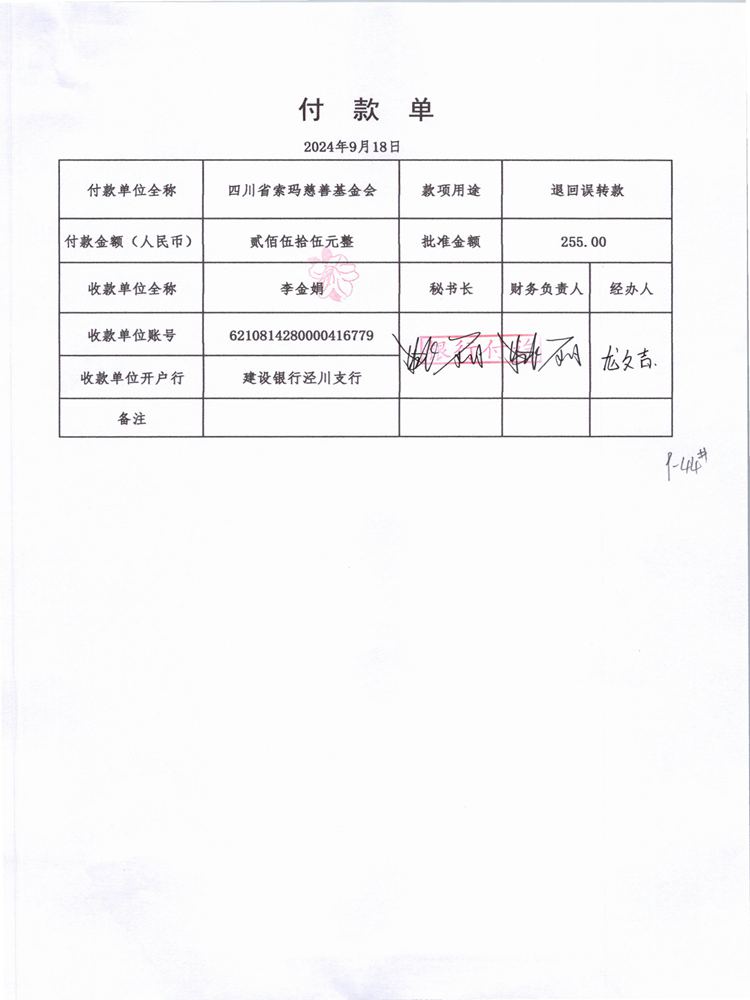 付款单
2024年9月18日
付款单位全称 四川省索玛慈善基金会 款项用途 退回误转款
付款金额（人民币） 贰佰伍拾伍元整 批准金额 255.00
收款单位全称 李金娟 秘书长 财务负责人 经办人
收款单位账号 6210814280000416779
银行付讫
龙文吉
收款单位开户行 建设银行泾川支行
备注
9-44#